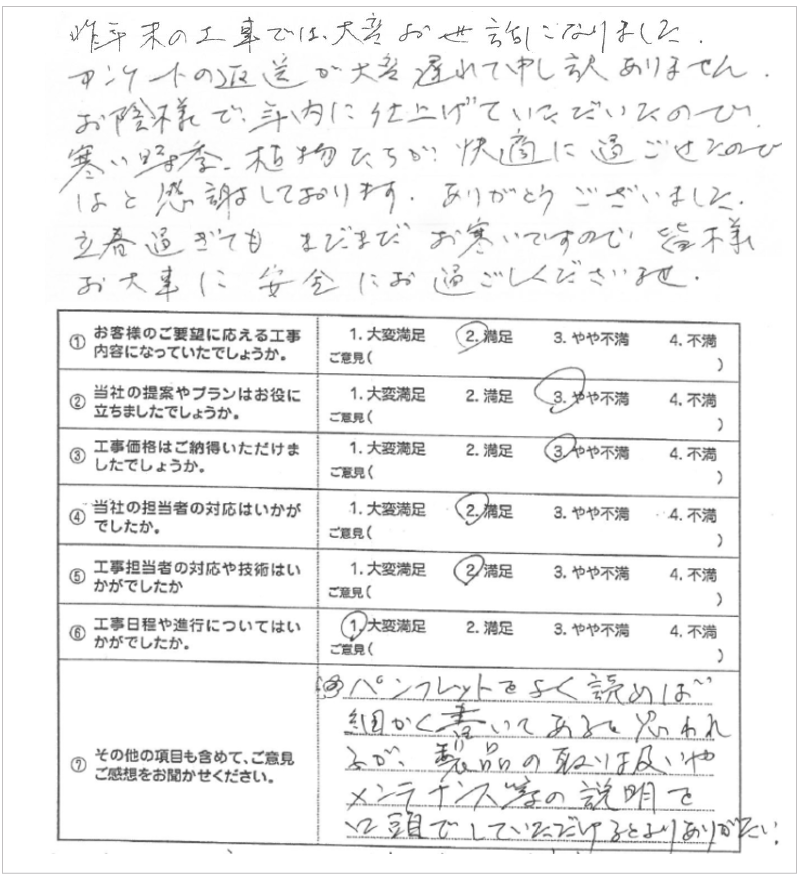 昨年末の工事では、大変お世話になりました。
アンケートの返送が大変遅れて申し訳ありません。
お陰様で、年内に仕上げていただいたので、
寒い時季、植物たちが、快適に過ごせたので
はと感謝しております。ありがとうございました。
立春過ぎてもまだまだお寒いですので、皆様
お大事に安全にお過ごしくださいませ。
① お客様のご要望に応える工事内容になっていたでしょうか。 1. 大変満足 2. 満足 3. やや不満 4. 不満
ご意見( )
② 当社の提案やプランはお役に立ちましたでしょうか。 1. 大変満足 2. 満足 3. やや不満 4. 不満
ご意見( )
③ 工事価格はご納得いただけましたでしょうか。 1. 大変満足 2. 満足 3. やや不満 4. 不満
ご意見( )
④ 当社の担当者の対応はいかがでしたか。 1. 大変満足 2. 満足 3. やや不満 4. 不満
ご意見( )
⑤ 工事担当者の対応や技術はいかがでしたか 1. 大変満足 2. 満足 3. やや不満 4. 不満
ご意見( )
⑥ 工事日程や進行についてはいかがでしたか。 1. 大変満足 2. 満足 3. やや不満 4. 不満
ご意見( )
⑦ その他の項目も含めて、ご意見
ご感想をお聞かせください。
パンフレットをよく読めば
細かく書いてあると思われ
るが、製品の取り扱いや
メンテナンス等の説明を
口頭でしていただけるとよりありがたい。